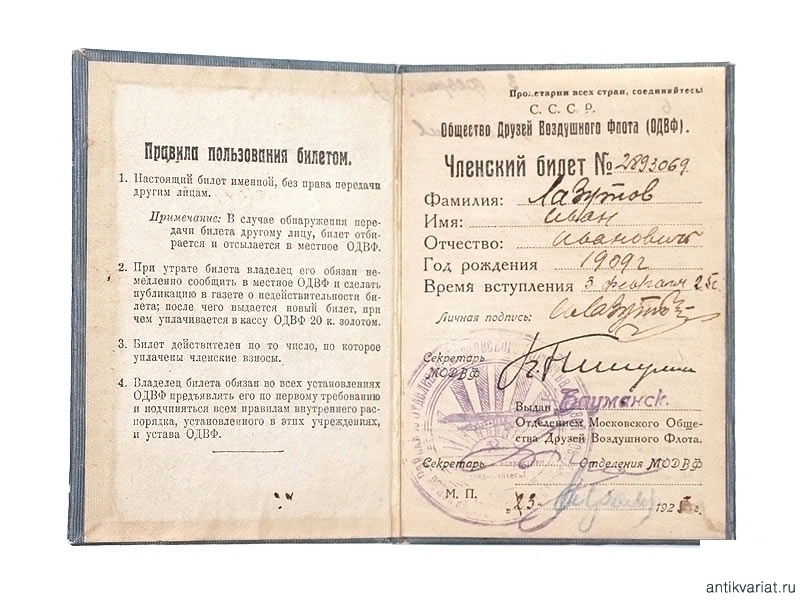 Правила пользования билетом.
1. Настоящий билет именной, без права передачи
другим лицам.
Примечание: В случае обнаружения пере-
дачи билета другому лицу, билет отби-
рается и отсылается в местное ОДВФ.
2. При утрате билета владелец его обязан не-
медленно сообщить в местное ОДВФ и сделать
публикацию в газете о недействительности би-
лета; после чего выдается новый билет, при
чем уплачивается в кассу ОДВФ 20 к. золотом.
3. Билет действителен по то число, по которое
уплачены членские взносы.
4. Владелец билета обязан во всех установлениях
ОДВФ предъявлять его по первому требованию
и подчиняться всем правилам внутреннего рас-
порядка, установленного в этих учреждениях,
и устава ОДВФ.
Пролетарии всех стран, соединяйтесь!
С. С. С. Р.
Общество Друзей Воздушного Флота (ОДВФ).
Членский билет № 2893069
Фамилия: Лазутов
Имя: Иван
Отчество: Иванович
Год рождения 1909 г
Время вступления 3 февраля 25 г.
Личная подпись:
Секретарь
МОДВФ
Выдан Бауманск.
Отделением Московского Обще-
ства Друзей Воздушного Флота.
Секретарь Отделения МОДВФ
М. П. 192 г.
antikvariat.ru